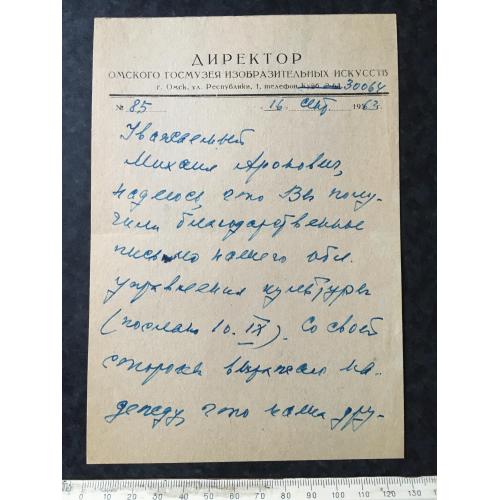 ДИРЕКТОР
ОМСКОГО ГОСМУЗЕЯ ИЗОБРАЗИТЕЛЬНЫХ ИСКУССТВ
г. Омск, ул. Республики, 1, телефон 30064
№ 85 16 сент. 1963 г.
Уважаемый
Михаил Аронович,
надеюсь, что Вы полу-
чили благодарственные
письмо нашего обл.
управления культуры
(послано 10. IX). Со своей
стороны выражаю на-
дежду, что наша дру-
0 10 20 30 40 50 60 70 80 90 100 110 120 130